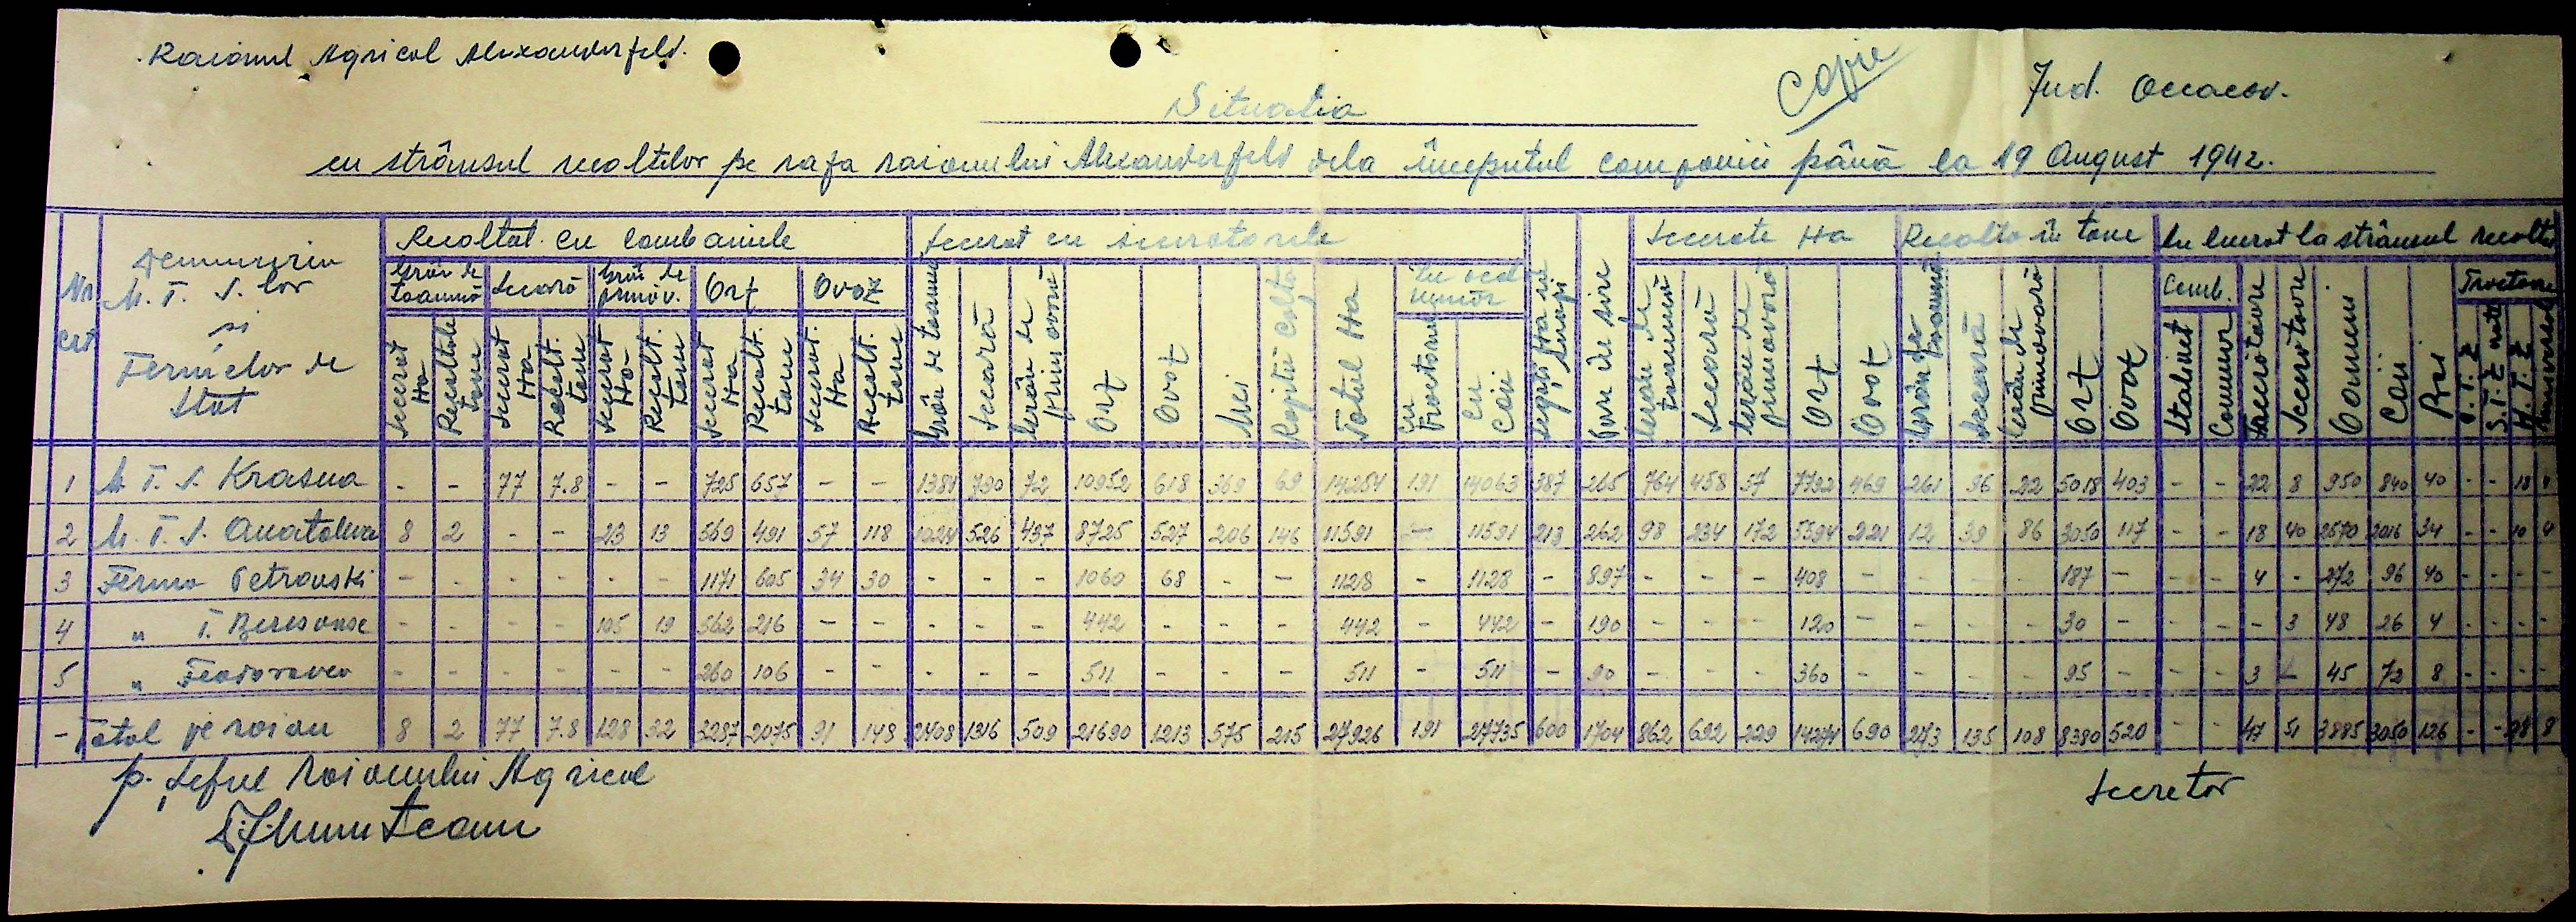 Raionul Agricol Alexanderfeld.
Copie
Jud. Oceacov.
Situatia
cu strânsul recoltelor pe raza raionului Alexanderfeld dela începutul campaniei până la 19 August 1942.
Nr crt
Denumirea M. T. S. lor si Fermelor de Stat
Recoltat cu Combainele
Secerat cu secerătorile
Secerate Ha
Recolta în tone
Au lucrat la strânsul recoltei
Grâu de toamnă
Secară
Grâu de primăv.
Orz
Ovăz
Comb.
Tractoare
Secerat Ha
Recoltate tone
Secerat Ha
Recolt. tone
Secerat Ha
Recolt. tone
Secerat Ha
Recolt. tone
Secerat. Ha
Recolt. tone
Grâu de toamnă
Secară
Grâu de primăvară
Orz
Ovăz
Mei
Total Ha
Cu Tractorul
Cu Caii
Grâu de toamnă
Secară
Grâu de primăvară
Orz
Ovăz
Grâu de toamnă
Secară
Grâu de primăvară
Orz
Ovăz
Stalinet
Comunar
Secerătoare
Oameni
Cai
Boi
1 M. T. S. Krasna - - 77 7.8 - - 725 657 - - 1381 790 72 10952 618 369 69 14254 191 14063 387 265 764 458 57 7792 469 261 96 22 5018 403 - - 22 8 950 840 40 - - 18 4
2 M. T. S. Anatolievca 8 2 - - 23 13 569 491 57 118 1024 526 437 8725 527 206 146 11591 - 11591 213 262 98 234 172 5594 221 12 39 86 3050 117 - - 18 40 2570 2016 34 - - 10 4
3 Ferma Petrovski - - - - - - 1171 605 34 30 - - - 1060 68 - - 1128 - 1128 - 897 - - - 408 - - - - 187 - - - 4 - 272 96 40 - - - -
4 " T. Beresovsc - - - - 105 19 562 216 - - - - - 442 - - - 442 - 442 - 190 - - - 120 - - - - 30 - - - - 3 48 26 4 - - - -
5 " Feodorovca - - - - - - 260 106 - - - - - 511 - - - 511 - 511 - 90 - - - 360 - - - - 95 - - - 3 - 45 72 8 - - - -
- Total pe raion 8 2 77 7.8 128 32 3287 2075 91 148 2408 1316 509 21690 1213 575 215 27926 191 27735 600 1704 862 692 229 14274 690 273 135 108 8380 520 - - 47 51 3885 3050 126 - - 28 8
p. Seful Raionului Agricol
Secretar